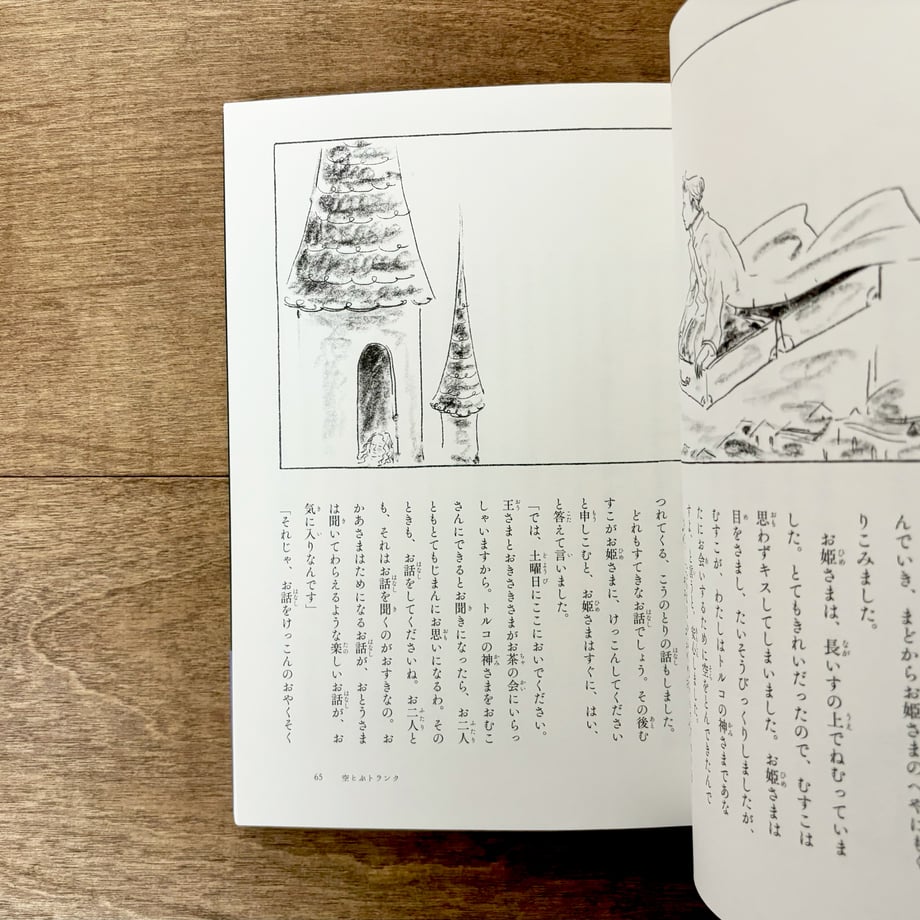 んでいき、まどからお姫さまのへやにも
りこみました。
お姫さまは、長いすの上でねむっていま
した。とてもきれいだったので、むすこは
思わずキスしてしまいました。お姫さまは
目をさまし、たいそうびっくりしましたが、
むすこが、わたしはトルコの神さまであな
たにお会いするために空をとんできたんで
つれてくる、こうのとりの話もしました。
どれもすてきなお話でしょう。その後む
すこがお姫さまに、けっこんしてください
と申しこむと、お姫さまはすぐに、はい、
と答えて言いました。
「では、土曜日にここにおいでください。
王さまとおきさきさまがお茶の会にいらっ
しゃいますから。トルコの神さまをおむこ
さんにできるとお聞きになったら、お二人
ともとてもじまんにお思いになるわ。その
ときも、お話をしてくださいね。お二人と
も、それはお話を聞くのがおすきなの。お
かあさまはためになるお話が、おとうさま
は聞いてわらえるような楽しいお話が、お
気に入りなんです」
「それじゃ、お話をけっこんのおやくそく
65 空とぶトランク